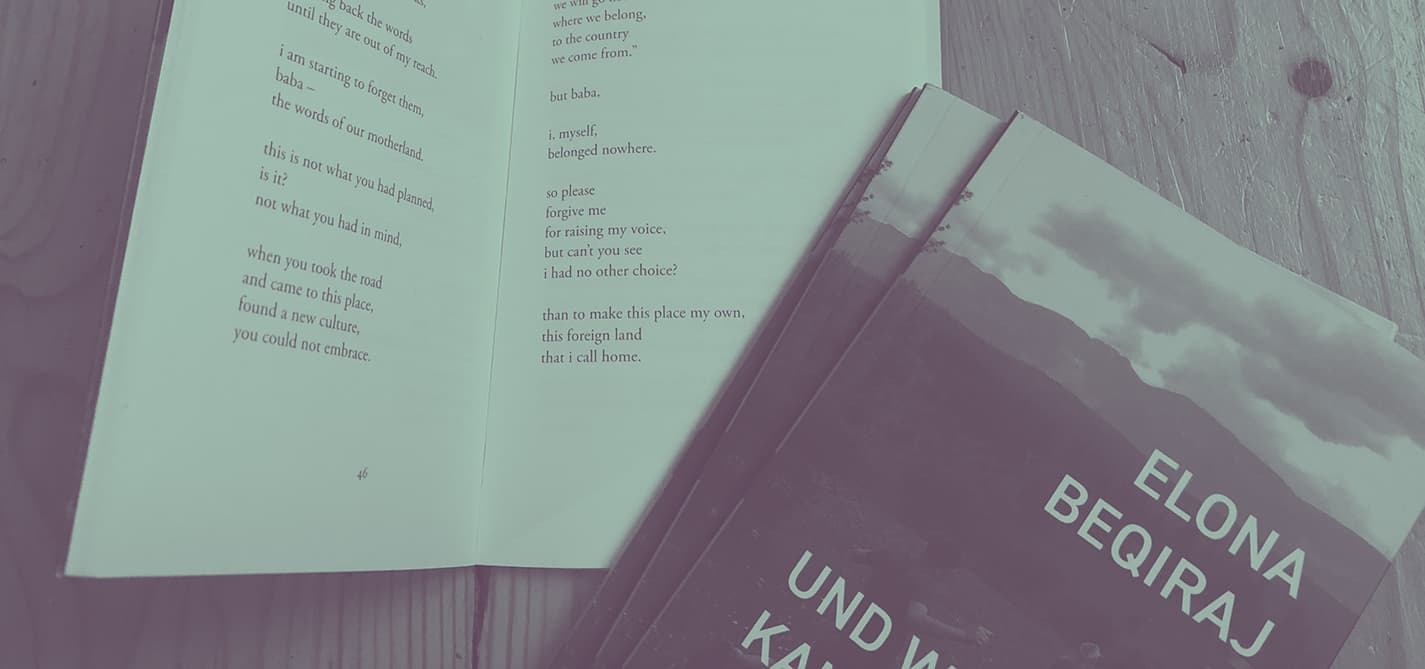 back the words
until they are out of my reach.
i am starting to forget them,
baba –
the words of our motherland.
this is not what you had planned,
is it?
not what you had in mind,
when you took the road
and came to this place,
found a new culture,
you could not embrace.
46
we will go
where we belong,
to the country
we come from.”
but baba,
i, myself,
belonged nowhere.
so please
forgive me
for raising my voice,
but can't you see
i had no other choice?
than to make this place my own,
this foreign land
that i call home.
ELONA
BEQIRAJ
UND